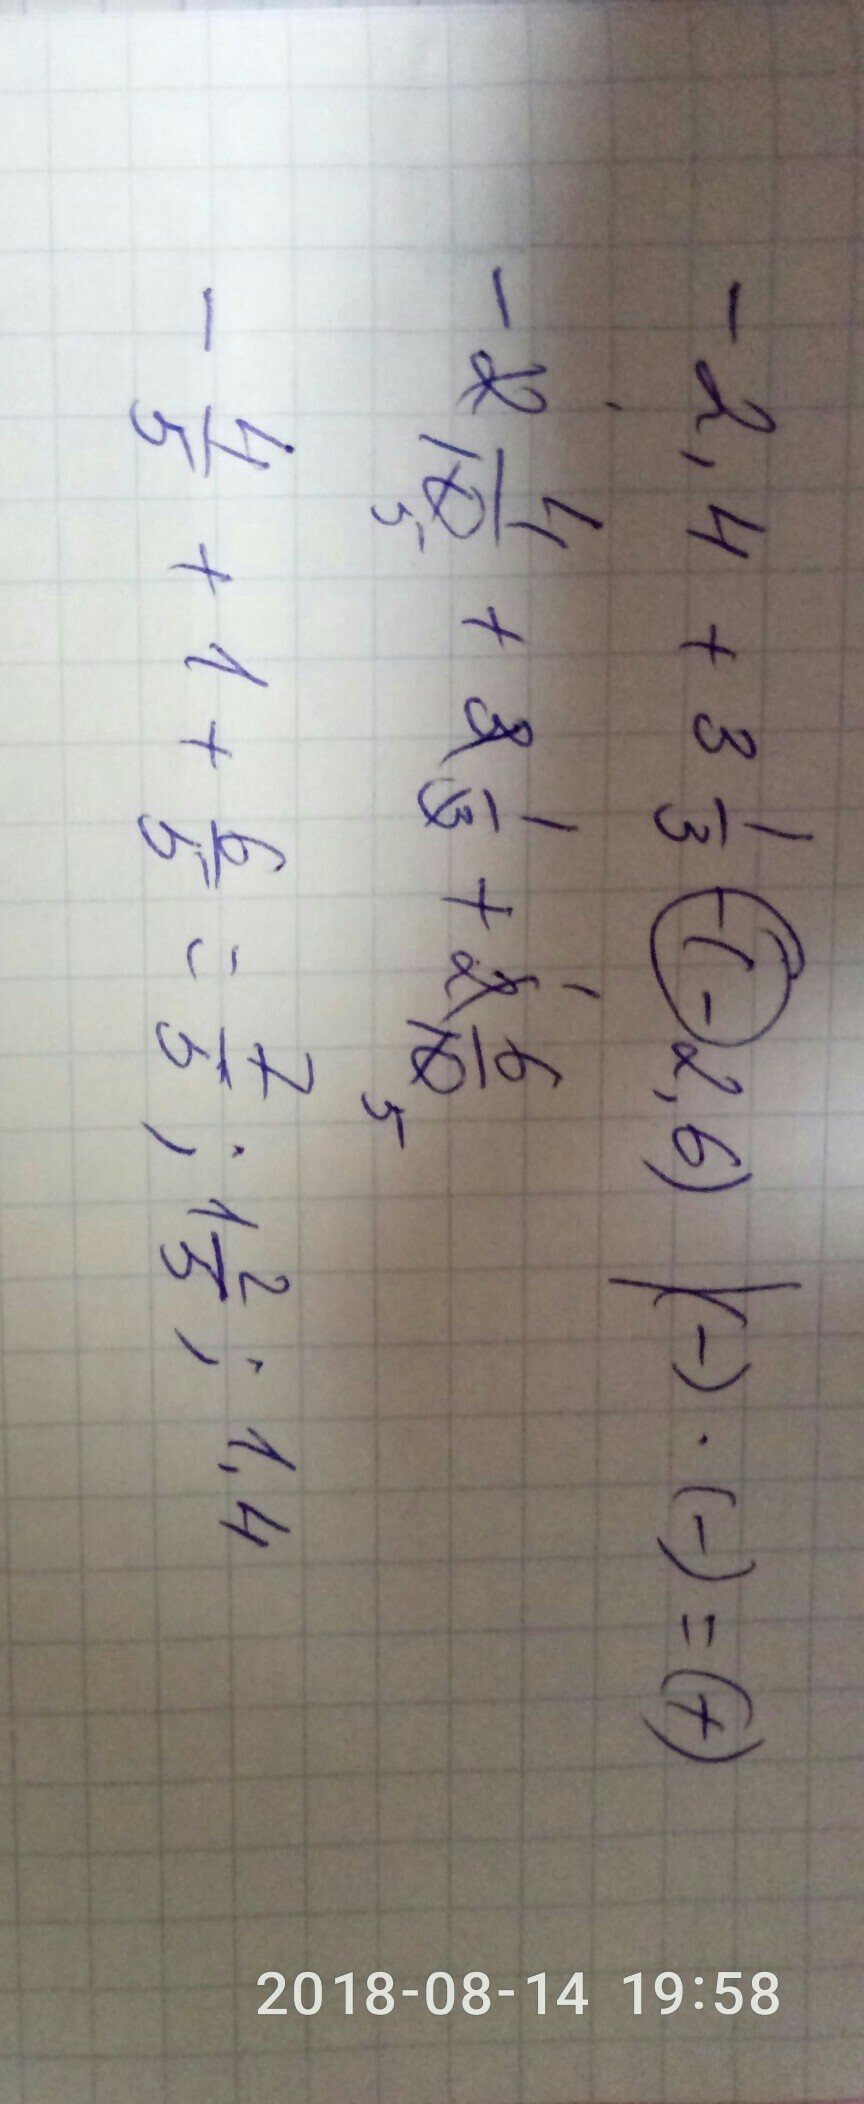 - 2,4 + 3 1/3 - (- 2,6) | (-) · (-) = (+)
- 2 4/10 + 3 1/3 + 2 6/10
1 5 1 5
- 4/5 + 1 + 6/5 = 7/5 ; 1 2/5 ; 1,4
2018-08-14 19:58